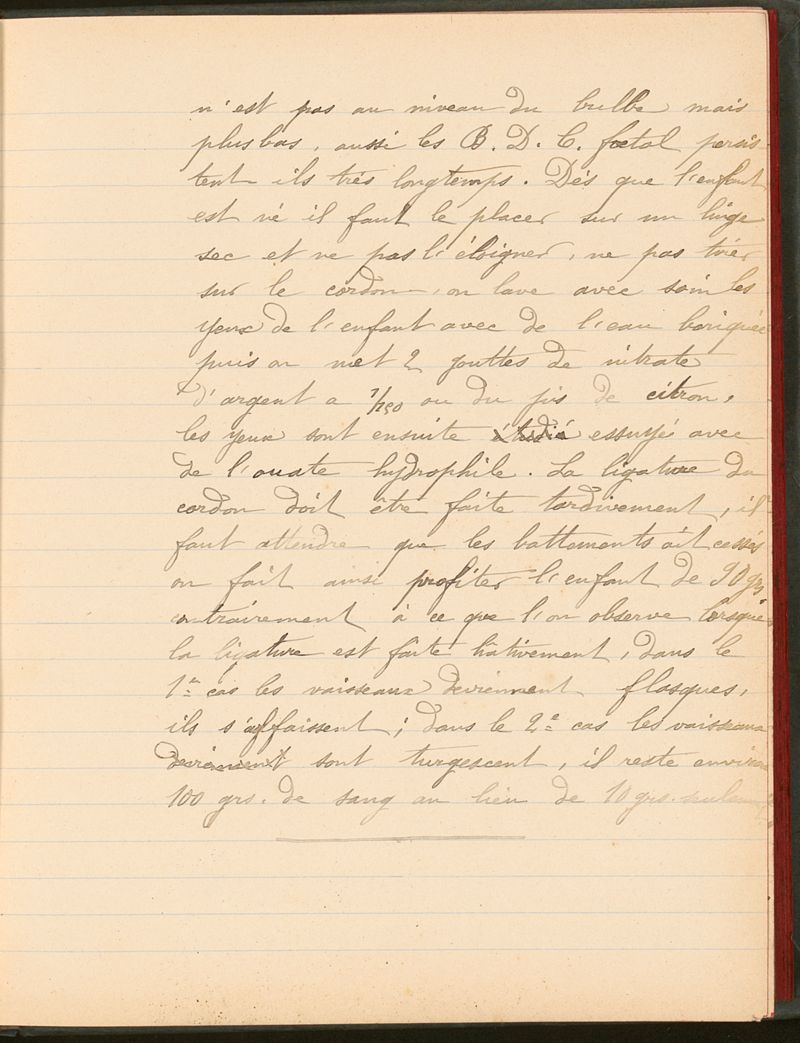 n'est pas au niveau du bulbe mais
plus bas, aussi les B. D. C. fœtal persis-
tent ils très longtemps. Dès que l'enfant
est né il faut le placer sur un linge
sec et ne pas l'éloigner, ne pas tirer
sur le cordon, on lave avec soin les
yeux de l'enfant avec de l'eau boriquée
puis on met 2 gouttes de nitrate
d'argent a 1/150 ou du jus de citron,
les yeux sont ensuite essuyé avec
de l'ouate hydrophile. La ligature du
cordon doit être faite tardivement, il
faut attendre que les battements ait cessés
on fait ainsi profiter l'enfant de 90 grs
contrairement à ce que l'on observe lorsque
la ligature est faite hâtivement, dans le
1er cas les vaisseaux deviennent flasques,
ils s'affaissent ; dans le 2e cas les vaisseaux
deviennent sont turgescent, il reste environ
100 grs. de sang au lieu de 10 grs. seulement